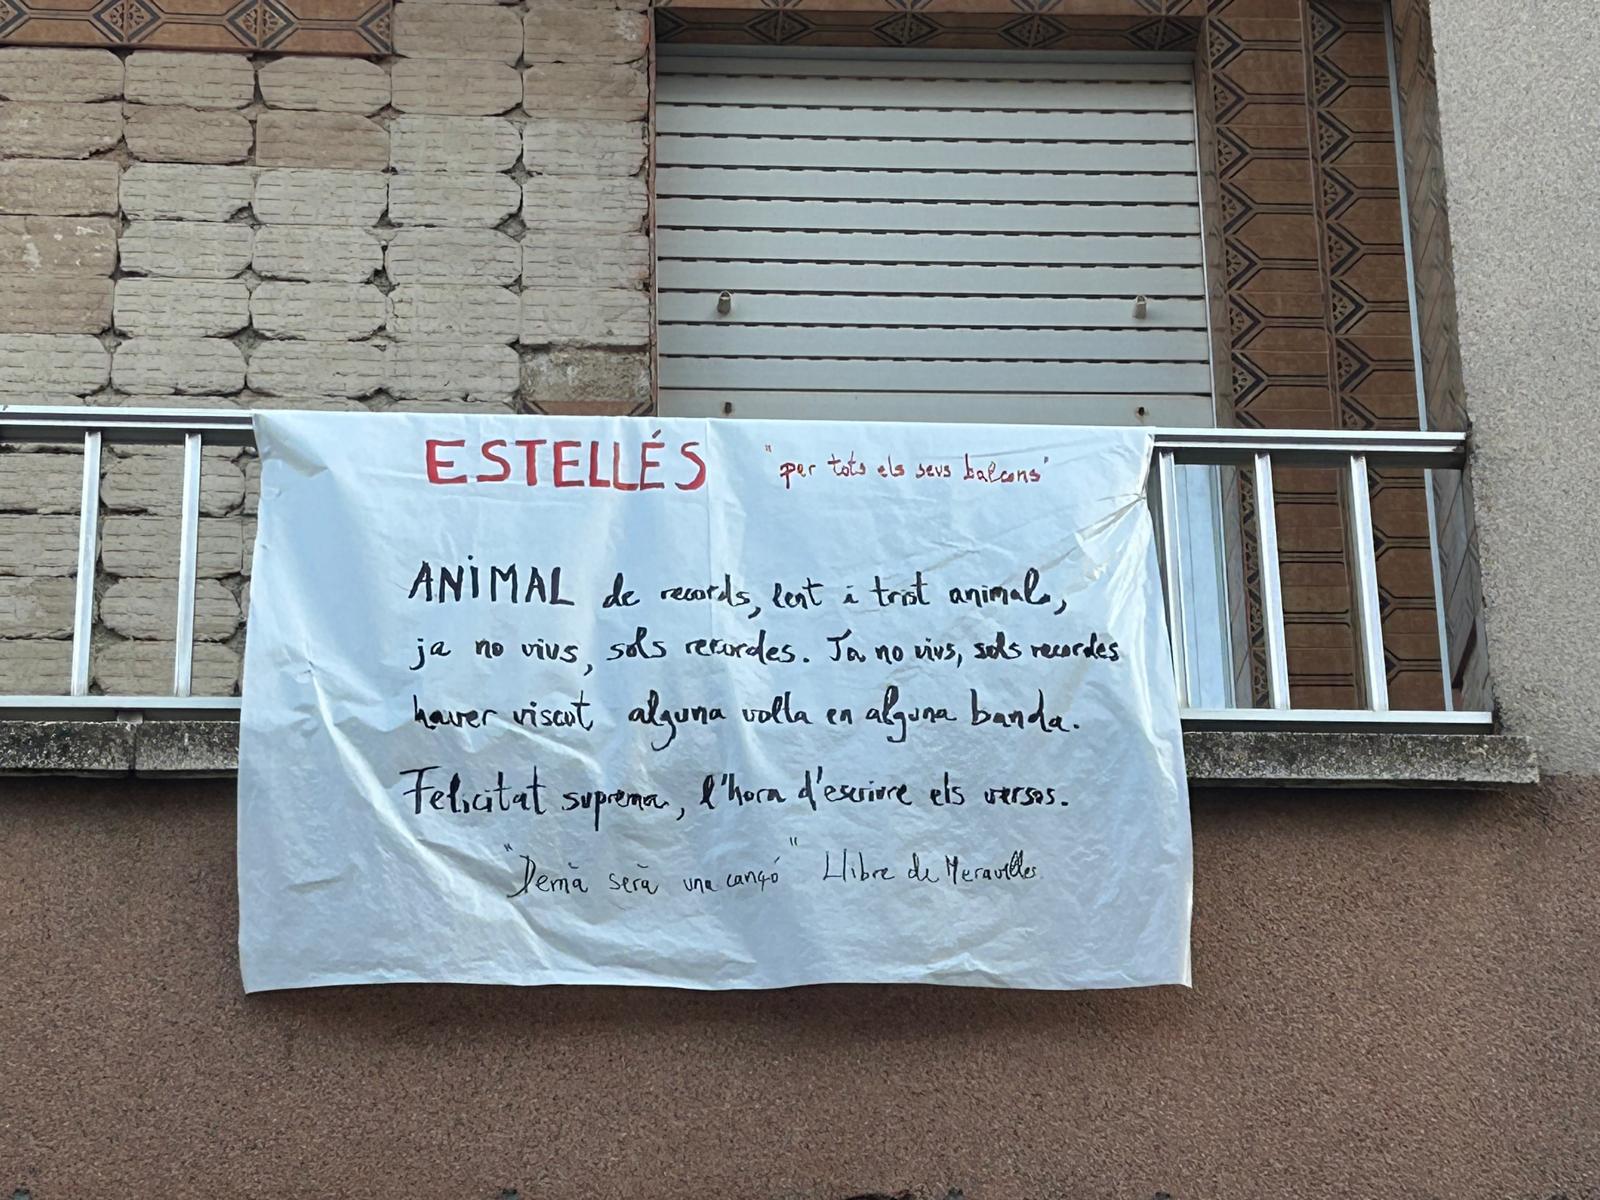 ESTELLÉS "per tots els seus balcons"
ANIMAL de records, lent i trist animal,
ja no vius, sols recordes. Ja no vius, sols recordes
haver viscut alguna volta en alguna banda.
Felicitat suprema, l'hora d'escriure els versos.
"Demà serà una cançó" Llibre de Meravelles